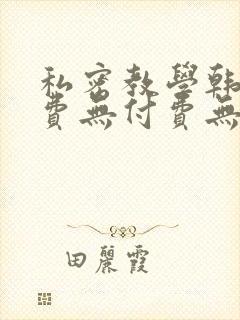 私密教學韩
費無付費無
田麗霞